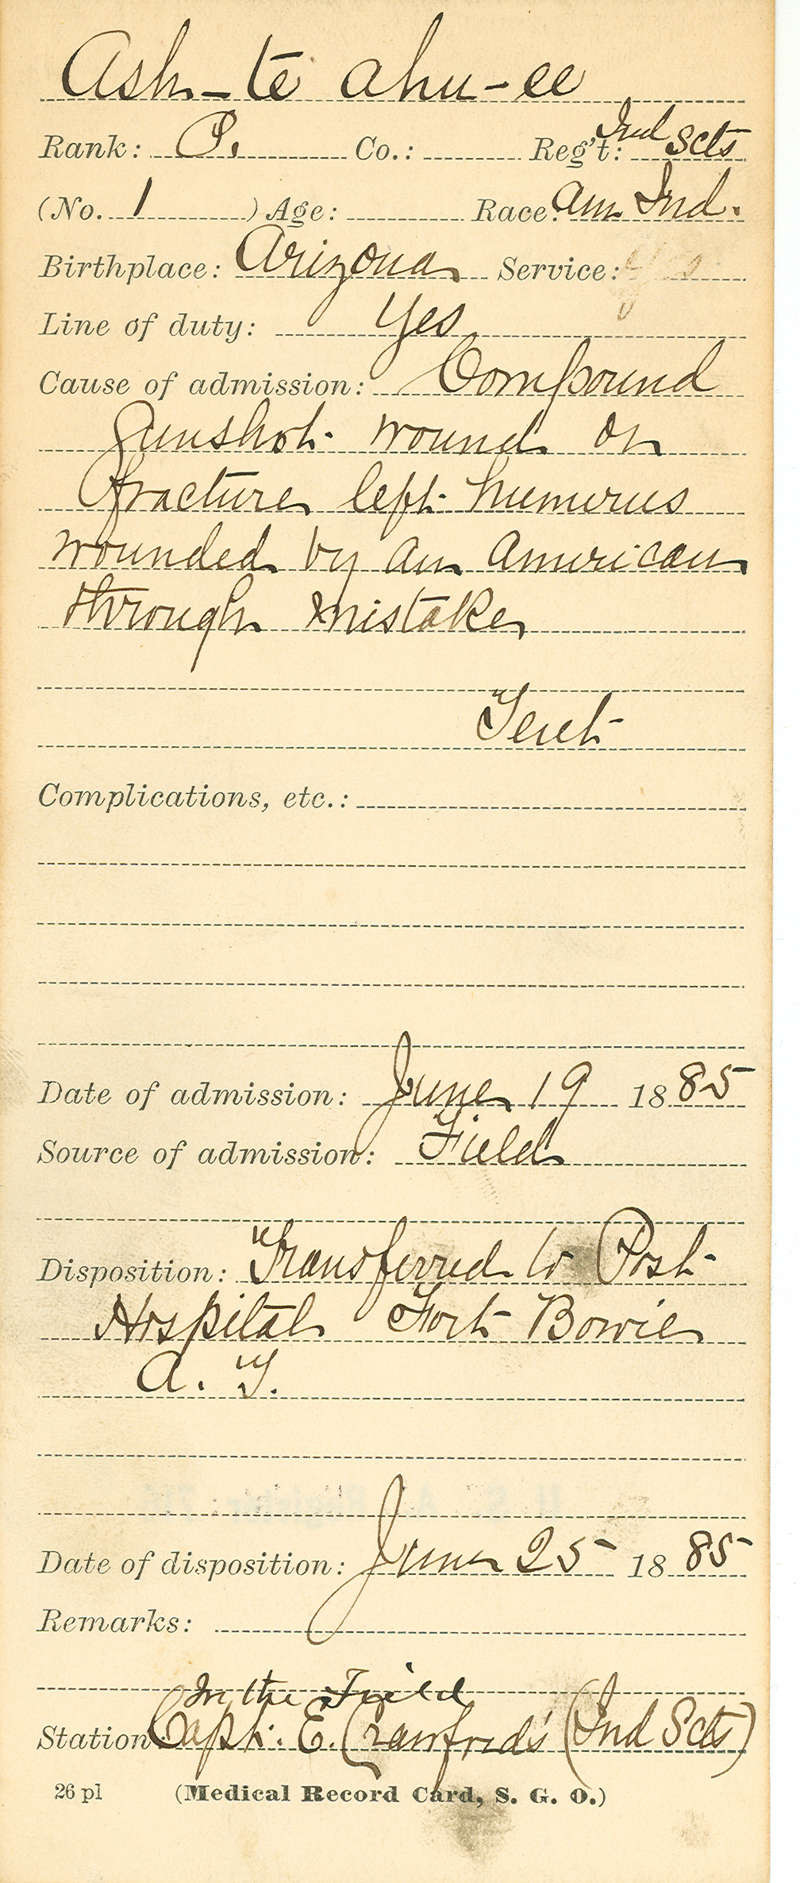 Ash-te ahu-ee
Rank: P. Co.: Reg't: Ind Scts
(No. 1 ) Age: Race: Am Ind.
Birthplace: Arizona Service:
Line of duty: Yes
Cause of admission: Compound
Gunshot wound on
fracture left humerus
wounded by an American
through mistake
Tent
Complications, etc.:
Date of admission: June 19 1885
Source of admission: Field
Disposition: Transferred to Post
Hospital Fort Bowie
A. T.
Date of disposition: June 25 1885
Remarks:
In the Field
Station Capt. E. Crawford's (Ind Scts)
26 pl (Medical Record Card, S. G. O.)